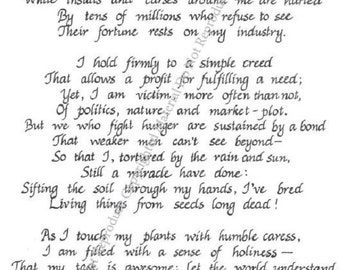 While insults and curses around me are hurled
By tens of millions who refuse to see
Their fortune rests on my industry.
I hold firmly to a simple creed
That allows a profit for fulfilling a need;
Yet, I am victim more often than not,
Of politics, nature and market-plot.
But we who fight hunger are sustained by a bond
That weaker men can't see beyond—
So that I, tortured by the rain and sun,
Still a miracle have done:
Sifting the soil through my hands, I've bred
Living things from seeds long dead!
As I touch my plants with humble caress,
I am filled with a sense of holiness—
That my task is awesome; let the world understand